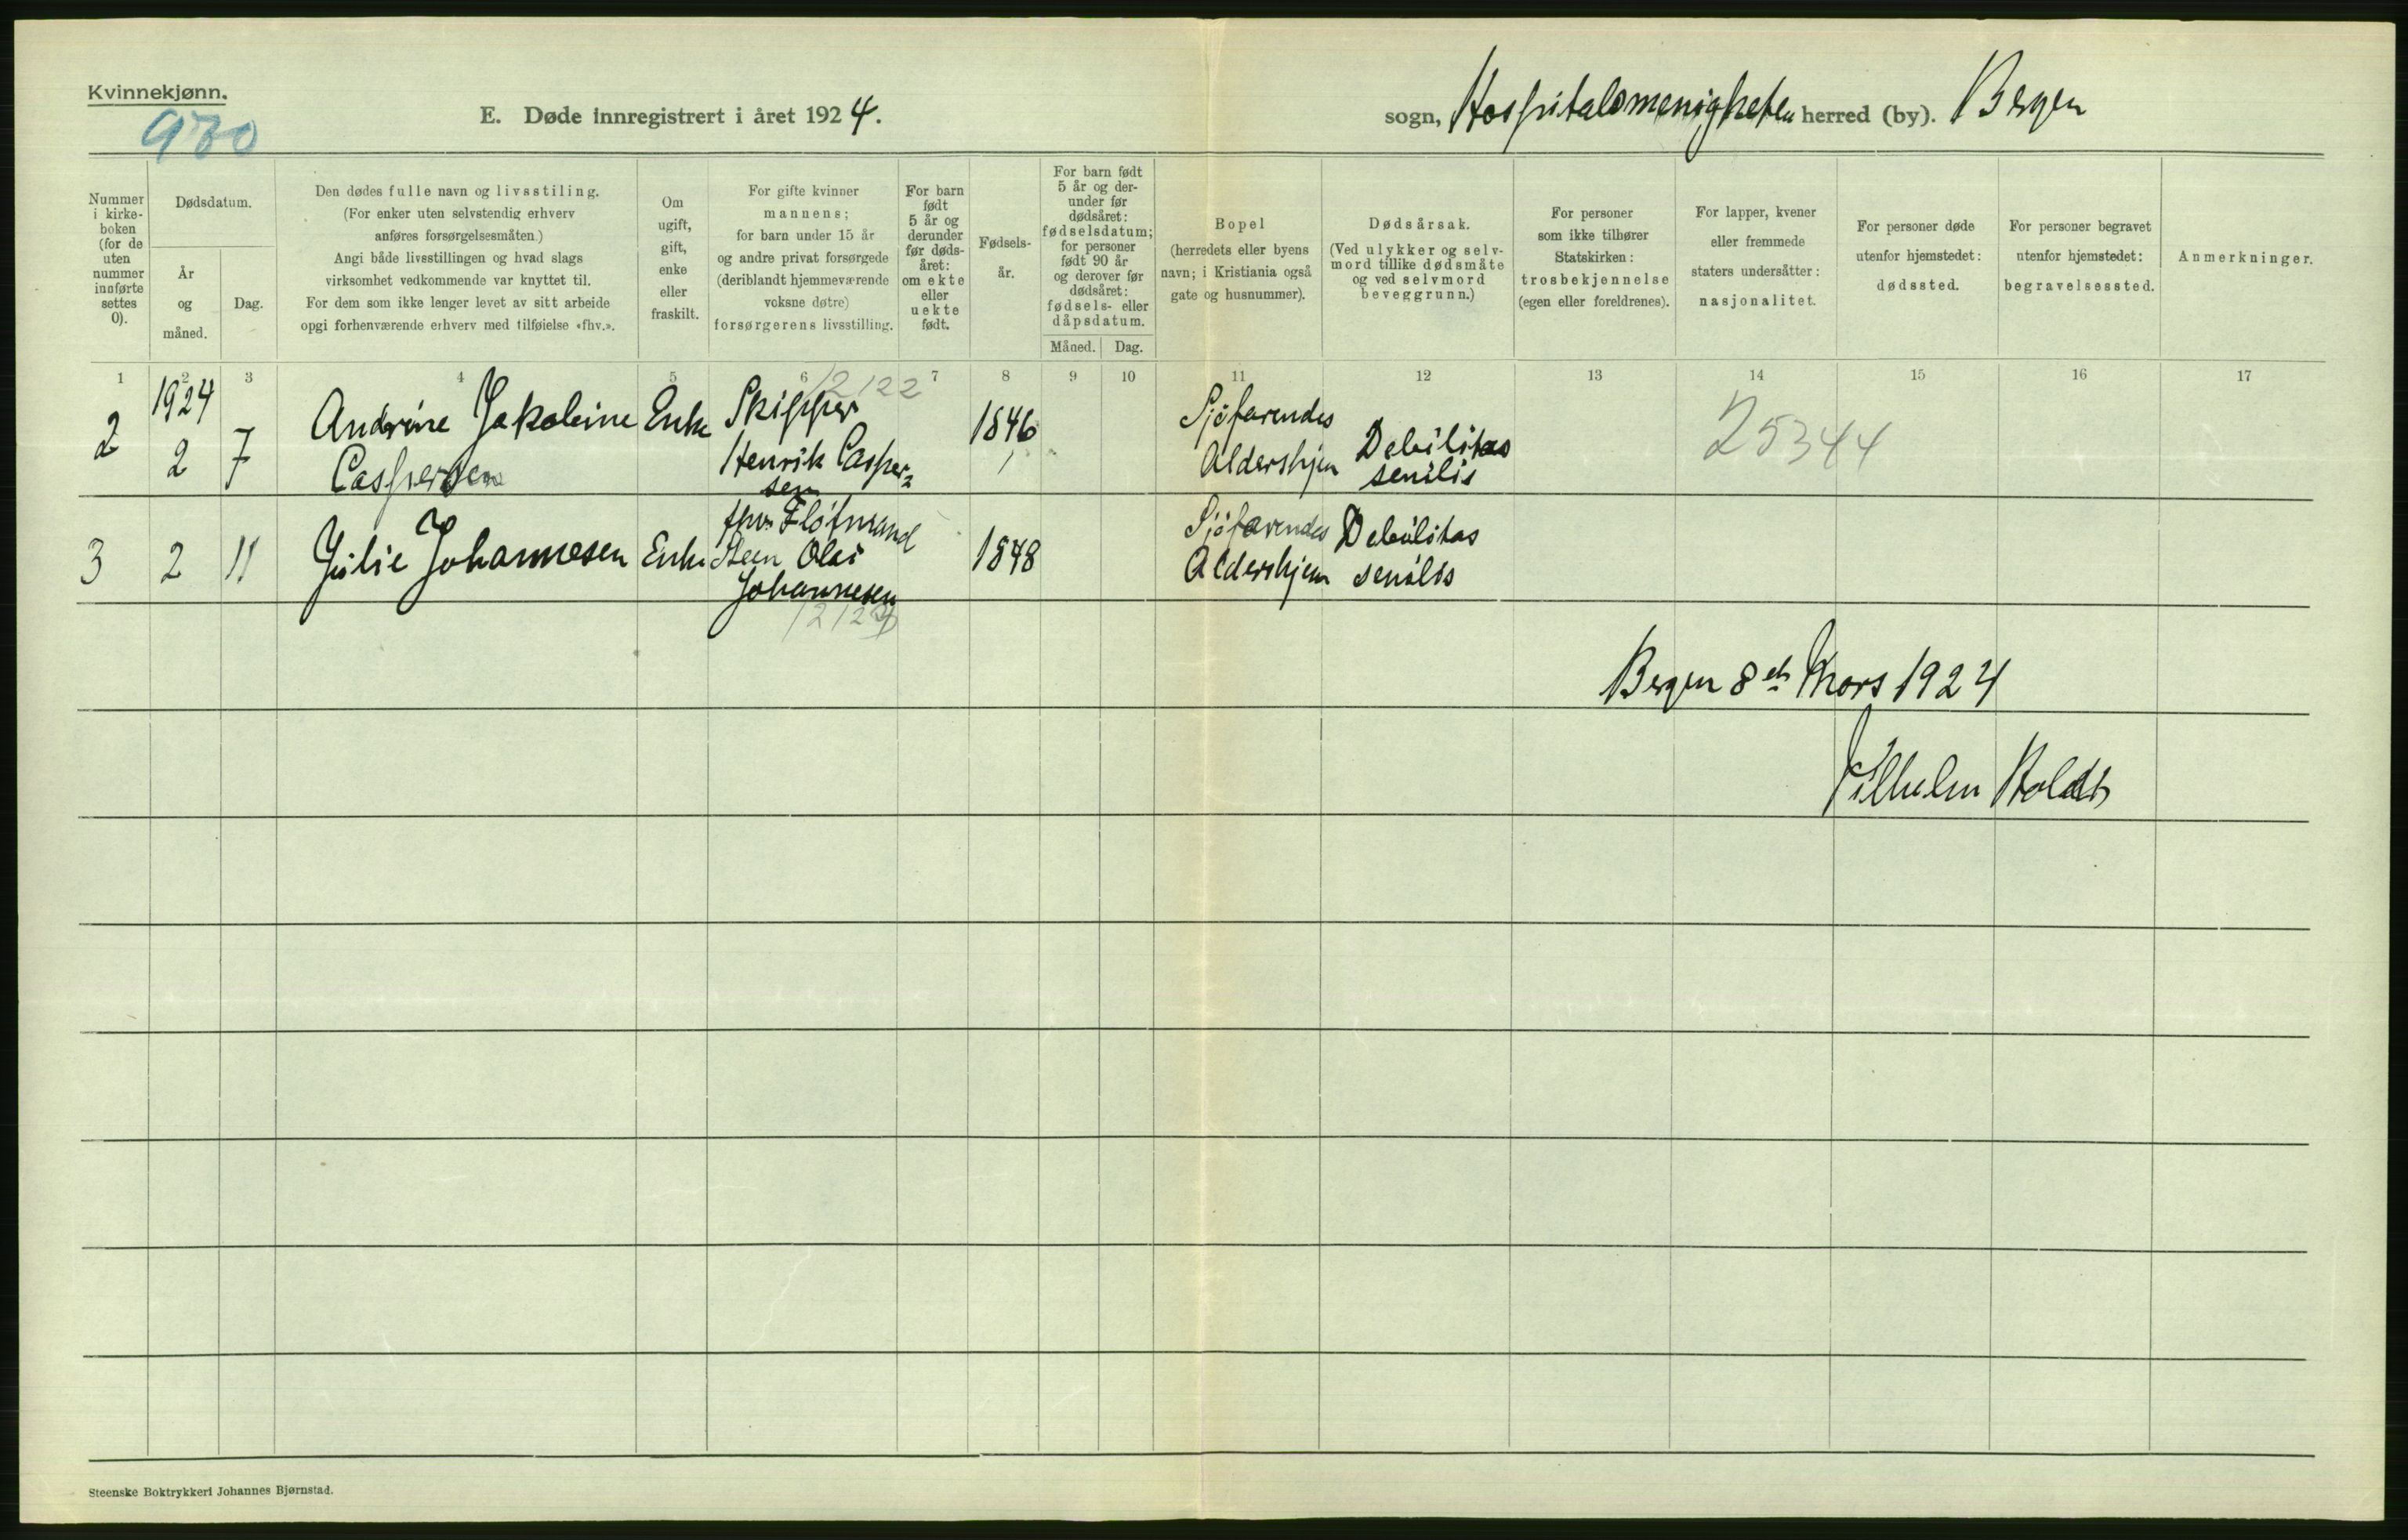 Kvinnekjønn.
E. Døde innregistrert i året 1924.
sogn, Hospitalsmenigheten herred (by). Bergen
Nummer i kirke-
boken
(for de
uten
nummer
innførte
settes
0).
Dødsdatum.
År
og
måned.
Dag.
Den dødes fulle navn og livsstiling.
(For enker uten selvstendig erhverv
anføres forsørgelsesmåten.)
Angi både livsstillingen og hvad slags
virksomhet vedkommende var knyttet til.
For dem som ikke lenger levet av sitt arbeide
opgi forhenværende erhverv med tilføielse «fhv.».
Om
ugift,
gift,
enke
eller
fraskilt.
For gifte kvinner
mannens;
for barn under 15 år
og andre privat forsørgede
(deriblandt hjemmeværende
voksne døtre)
forsørgerens livsstilling.
For barn
født
5 år og
derunder
før døds-
året:
om ekte
eller
uekte
født.
Fødsels-
år.
For barn født
5 år og der-
under før
dødsåret:
fødselsdatum;
for personer
født 90 år
og derover før
dødsåret:
fødsels- eller
dåpsdatum.
Måned. Dag.
Bopel
(herredets eller byens
navn; i Kristiania også
gate og husnummer).
Dødsårsak.
(Ved ulykker og selv-
mord tillike dødsmåte
og ved selvmord
beveggrunn.)
For personer
som ikke tilhører
Statskirken:
trosbekjennelse
(egen eller foreldrenes).
For lapper, kvener
eller fremmede
staters undersåtter:
nasjonalitet.
For personer døde
utenfor hjemstedet:
dødssted.
For personer begravet
utenfor hjemstedet:
begravelsessted.
Anmerkninger.
1 2 3 4 5 6 7 8 9 10 11 12 13 14 15 16 17
1924
12122
2 2 7 Andrine Jakobine
Caspersen
Enke
Skipper
Henrik Casper=
sen
1846
Sjöfarendes
Aldershjem
Debilitas
senilis
25344
3 2 11 Julie Johannesen Enke
fhv. Flötmand
Steen Olai
Johannesen
1848
Sjöfarendes
Aldershjem
Debilitas
senilis
Bergen 8de Mars 1924
Vilhelm Holdt
Steenske Boktrykkeri Johannes Bjørnstad.